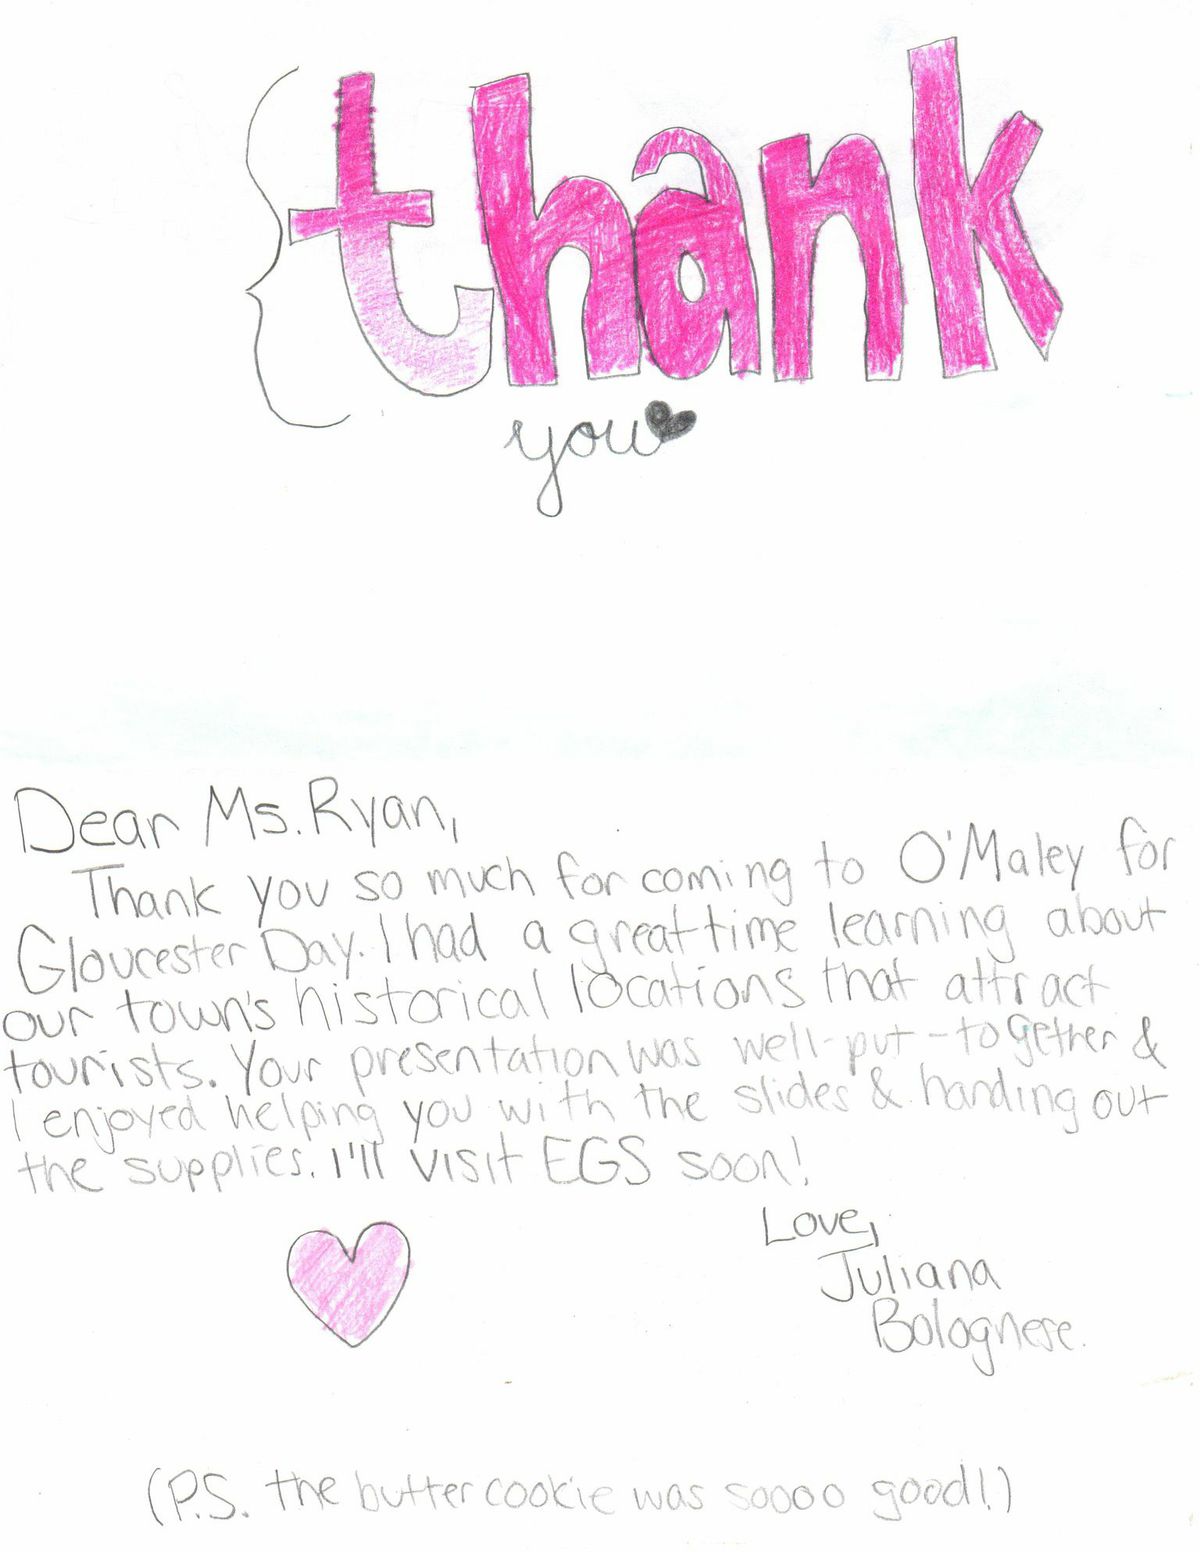 thank
you
Dear Ms. Ryan,
Thank you so much for coming to O'Maley for
Gloucester Day. I had a great time learning about
our town's historical locations that attract
tourists. Your presentation was well-put-together &
I enjoyed helping you with the slides & handing out
the supplies. I'll visit EGS soon!
Love,
Juliana
Bolognese.
(P.S. the butter cookie was soooo good!)